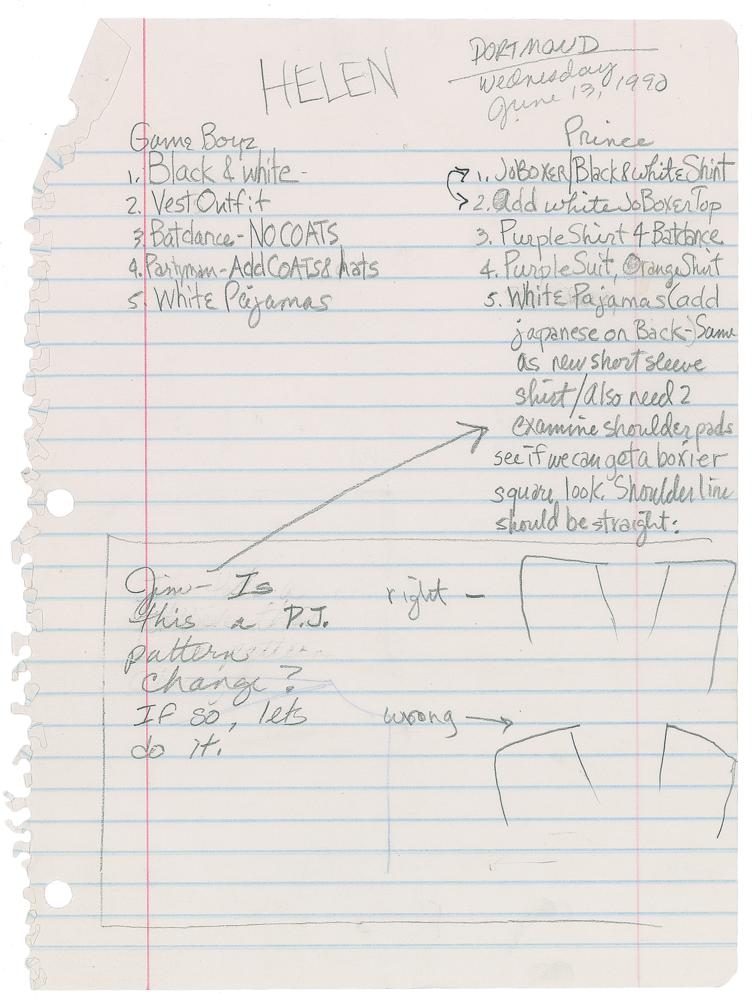 HELEN
DORTMOUD
Wednesday
June 13, 1990
Game Boyz
1. Black & white -
2. Vest Outfit
3. Batdance - NO COATS
4. Partyman - Add COATS & hats
5. White Pajamas
Prince
1. JoBOXER/Black & white Shirt
2. Add white JoBoxer Top
3. Purple Shirt 4 Batdance
4. Purple Suit, Orange Shirt
5. White Pajamas (add
japanese on Back-) Same
as new short sleeve
shirt/Also need 2
examine shoulder pads
see if we can get a boxier
square look. Shoulder line
should be straight:
Jim - Is
this a P.J.
pattern
change?
If so, lets
do it.
right -
wrong